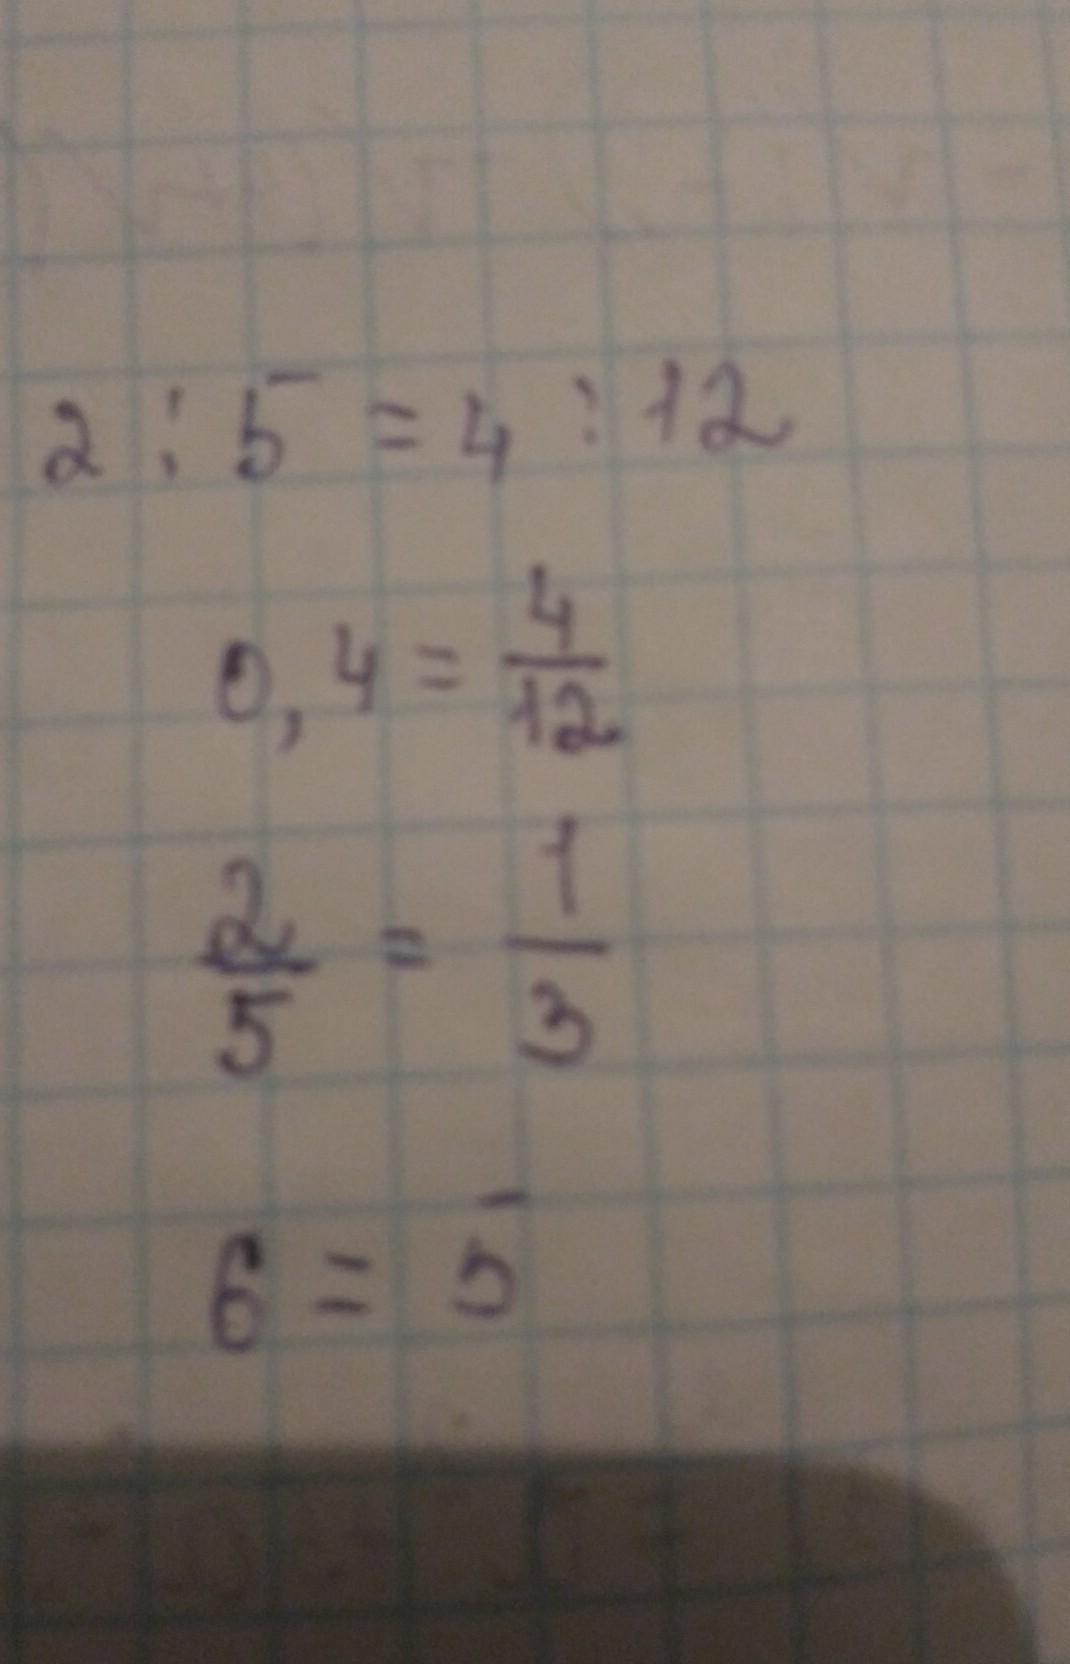 2 : 5 = 4 : 12
0,4 = 4/12
2/5 = 1/3
6 = 5